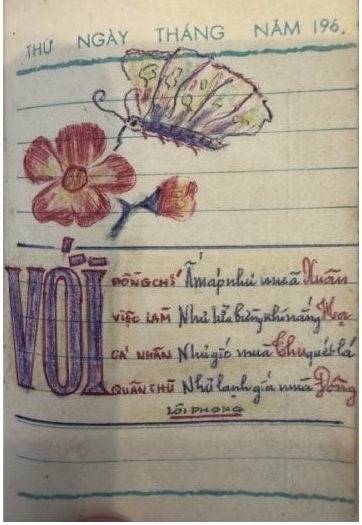 THỨ NGÀY THÁNG NĂM 196.
VỚI
ĐỒNG CHÍ Ấm áp như mùa Xuân
VIỆC LÀM Như lửa bừng khi nắng Hạ
CÁ NHÂN Như gió mùa Thu quét lá
QUÂN THÙ Như lạnh giá mùa Đông
LÔI PHONG